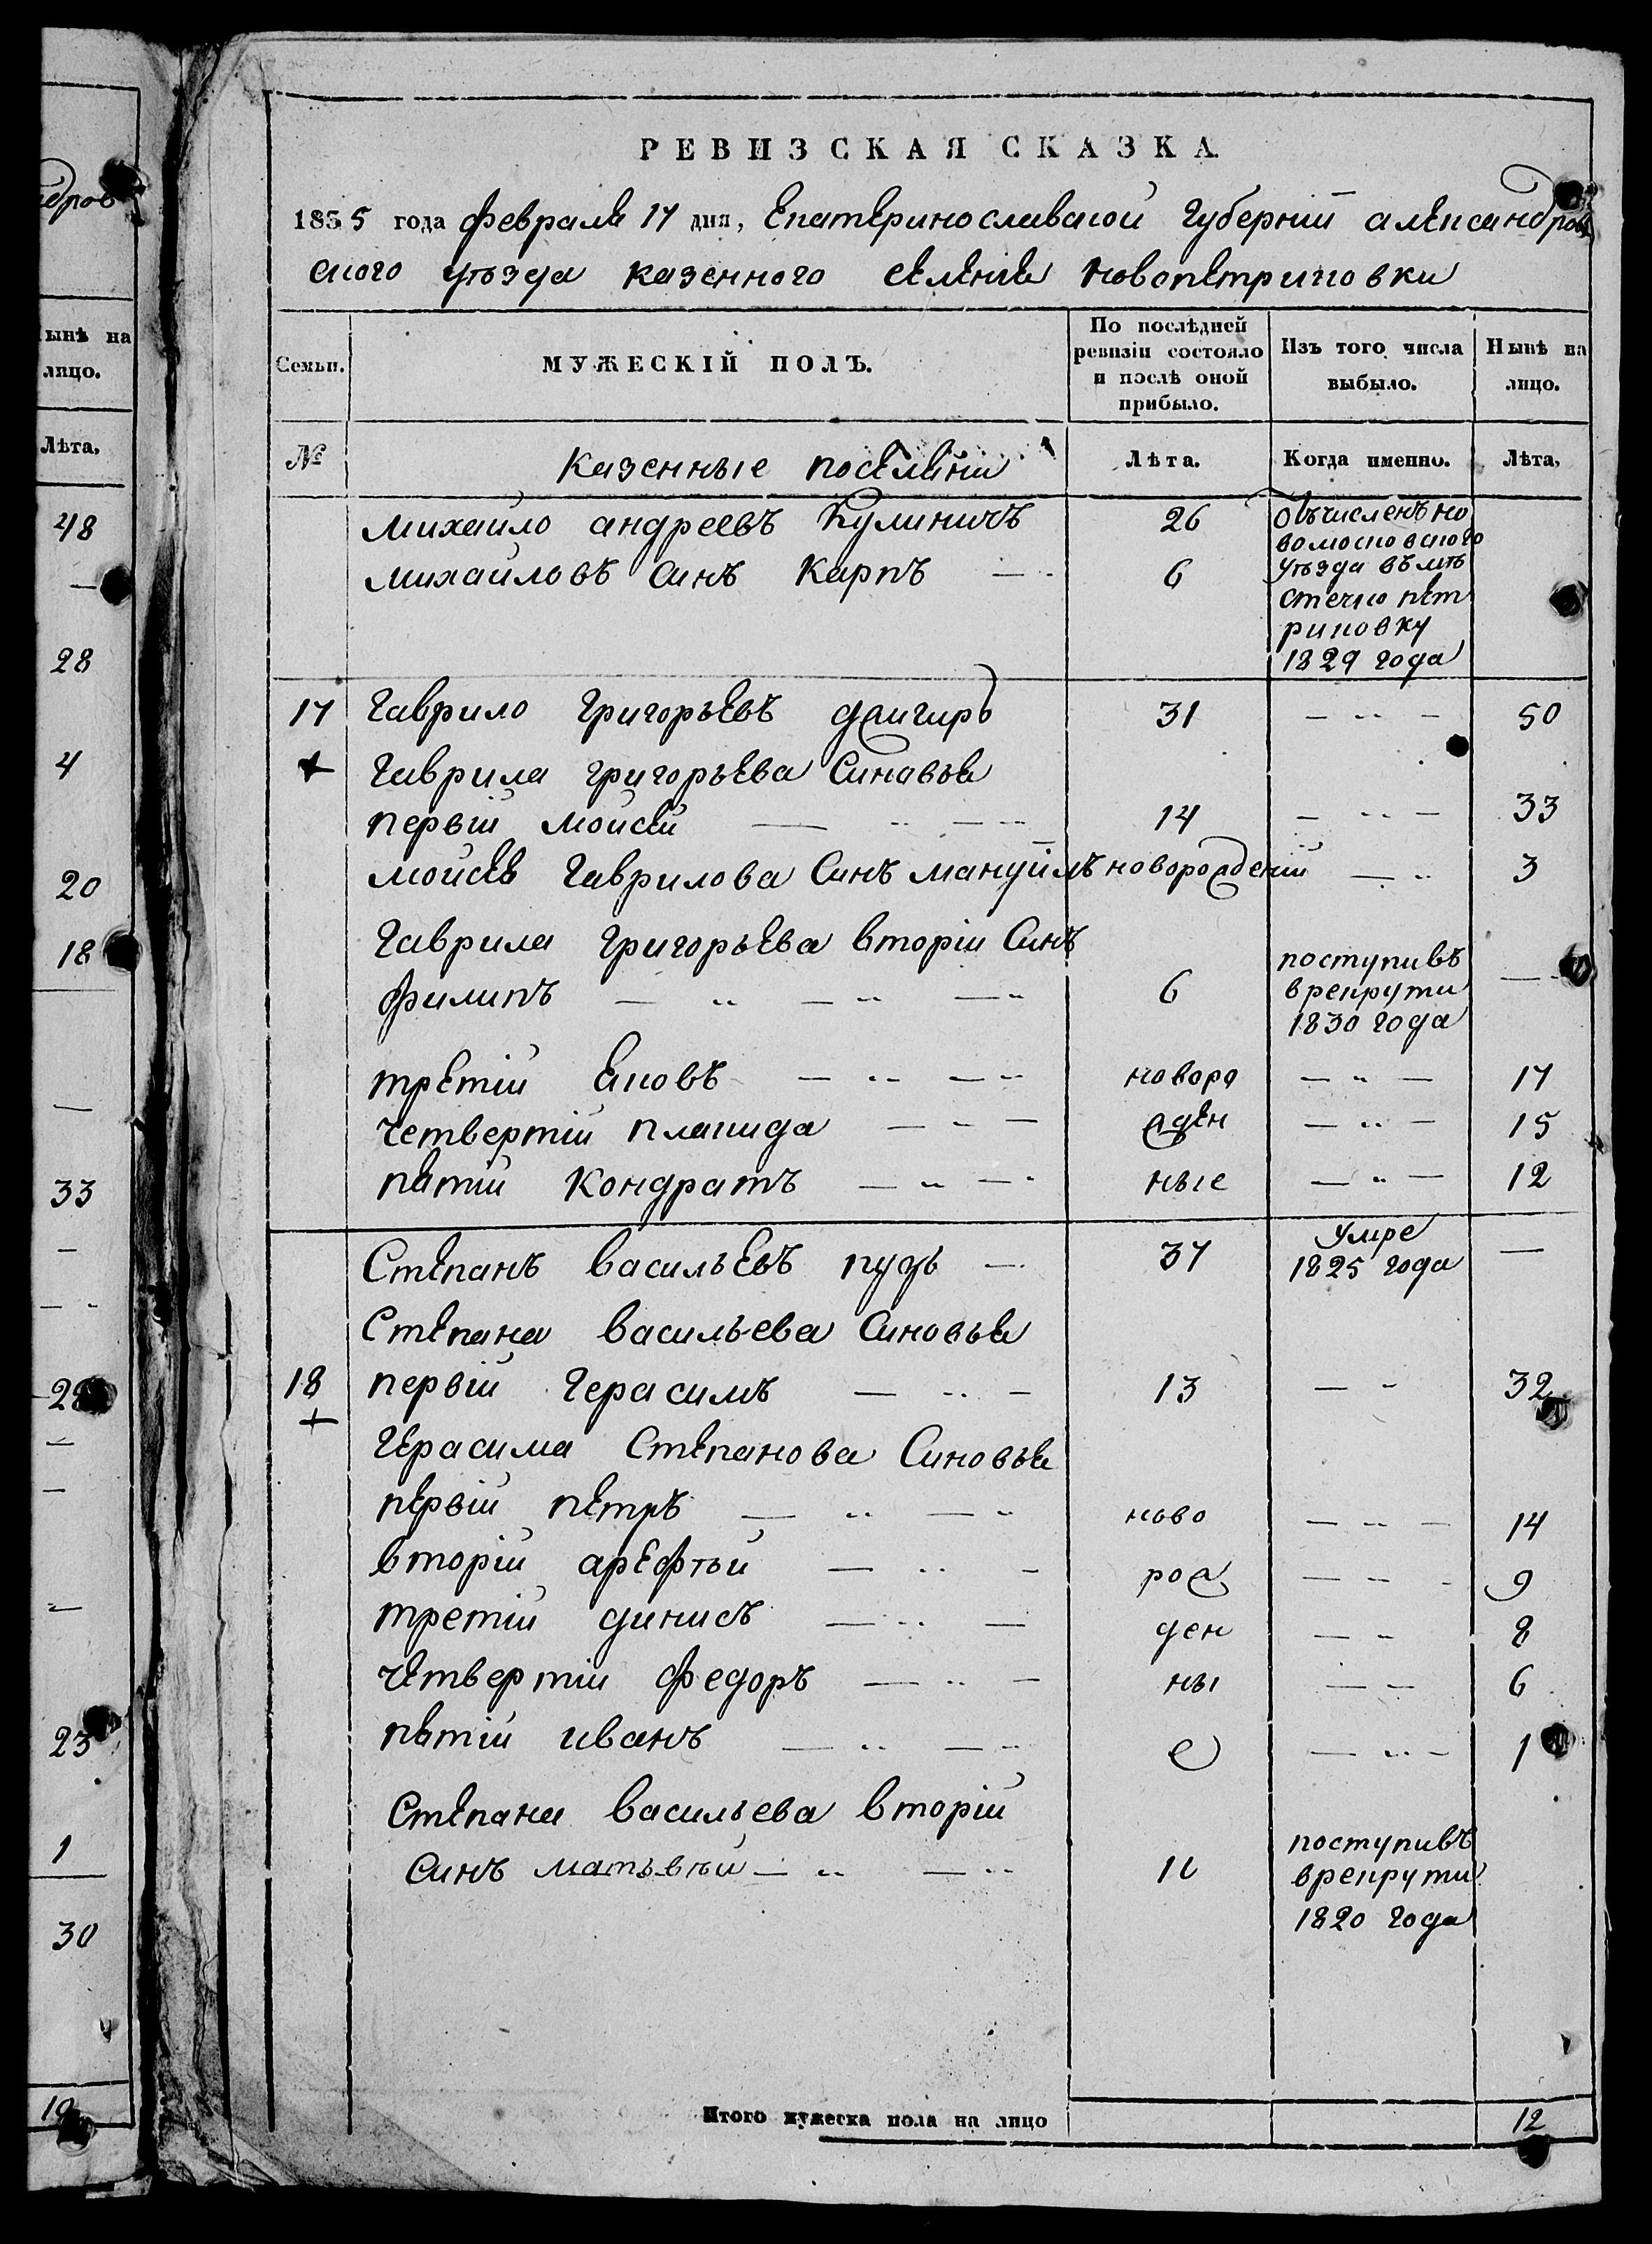 дров
ынѣ на
лицо.
Лѣта,
48
28
4
20
18
33
28
23
1
30
РЕВИЗСКАЯ СКАЗКА.
1835 года февраля 17 дня, Екатеринославской губернии александров
ского уѣзда казенного селения новопетриковки
Семьи. МУЖЕСКІЙ ПОЛЪ. По послѣдней ревизіи состояло и послѣ оной прибыло. Изъ того числа выбыло. Нынѣ на лицо.
№ казенные поселяни Лѣта. Когда именно. Лѣта,
михайло андреевъ Кулиничъ 26 обчисленъ но
вомосковского
михайловъ синъ Карпъ 6 уѣзда въ мѣ
стечко пет
риковку
1829 года
17 гаврило григорьевъ 31 50
гаврила григорьева синовья
первій мойсей 14 33
мойсея гаврилова синъ мануйлъ новорожденій 3
гаврила григорьева вторій синъ
филипъ 6 поступивъ
врекрути
1830 года
третій яковъ новоро 17
четвертій плакида жден 15
пятій кондратъ ные 12
Степанъ васильевъ пузь 37 умре
1825 года
Степана васильева синовья
18 первій герасимъ 13 32
герасима степанова синовья
первій петръ ново 14
вторій арефтьй рож 9
третій динисъ ден 8
четвертій федоръ ны 6
пятій иванъ е 1
Степана васильева вторій
синъ матьвѣй поступивъ
врекрути
1820 года
Итого мужеска пола на лицо 12